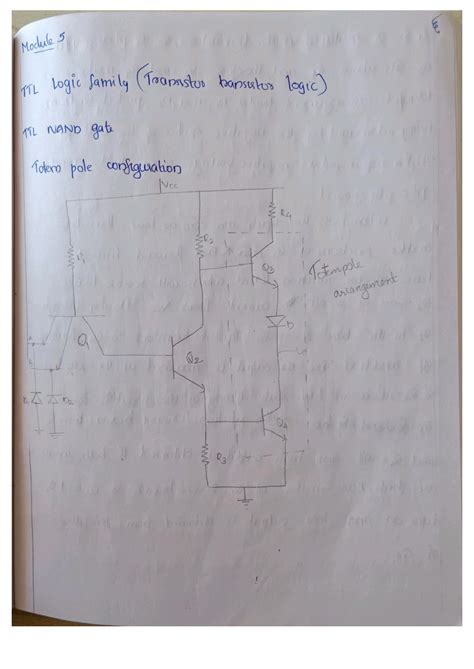 Module 5
TTL Logic family (Transistor transistor logic)
TTL NAND gate
Totem pole configuration
Vcc
R4
R2
R1
Q3
Totempole
arrangement
D
Q1
Q2
Q4
R3